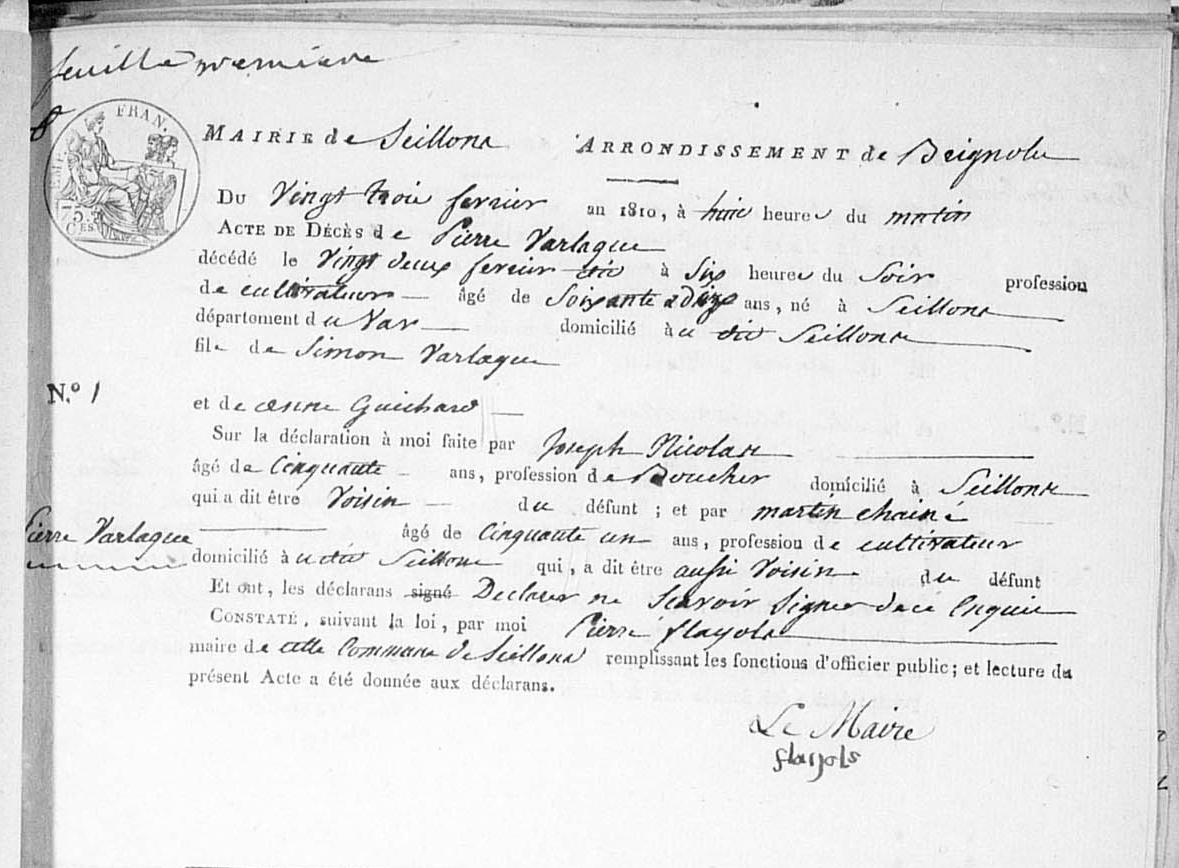 feuille premiere
FRAN.
75.
CES
MAIRIE de Seillons ARRONDISSEMENT de Brignole
DU Vingt trois fevrier an 1810, à huit heures du matin
ACTE DE DÉCÈS de Pierre Varlaque
décédé le Vingt deux fevrier à Six heures du Soir profession
de cultivateur âgé de Soixante & Dix ans, né à Seillons
département du Var domicilié au dit Seillons
fils de Simon Varlaque
N.º 1
et de anne Guichard
Sur la déclaration à moi faite par Joseph Nicolas
âgé de Cinquante ans, profession de Boucher domicilié à Seillons
qui a dit être Voisin du défunt ; et par martin chaine
Pierre Varlaque
âgé de Cinquante un ans, profession de cultivateur
domicilié au dit Seillons qui, a dit être aussi Voisin du défunt
Et ont, les déclarans signé Declarer ne Scavoir Signer de ce Enquis
CONSTATÉ, suivant la loi, par moi Pierre flayols
maire de cette Commune de Seillons remplissant les fonctions d'officier public; et lecture du
présent Acte a été donnée aux déclarans.
Le Maire
flayols